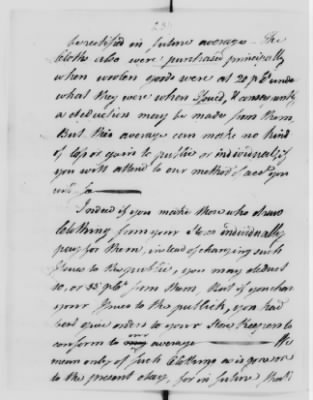 be rectified in future averages. The
Cloths also were purchased principally
when woolen goods were at 20 p Ct under
what they were when I found, & consequently
a deduction may be made from them,
But this average can make no kind
of loss or gain to public or individuals if
you will attend to our method of acct. you
will so
Indeed if you make those who draw
Cloathing from your Store individually
pay for them, instead of charging such
Issues to the public, you may deduct
30, or 35 p Ct. from them. But if you charge
your Issues to the publick, you had
best give orders to your Store Keepers to
conform to our average We
mean only of such Cloathing as is given
to the present day, for in future